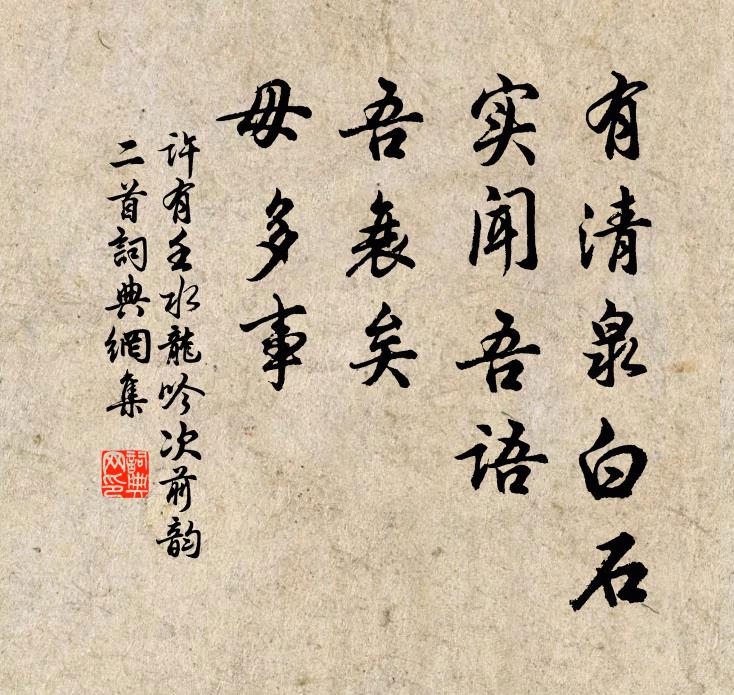 有清泉白石
实闻吾语
吾衰矣
毋多事
许有壬水龍吟次前韵
二首詞典網集
詞典网印